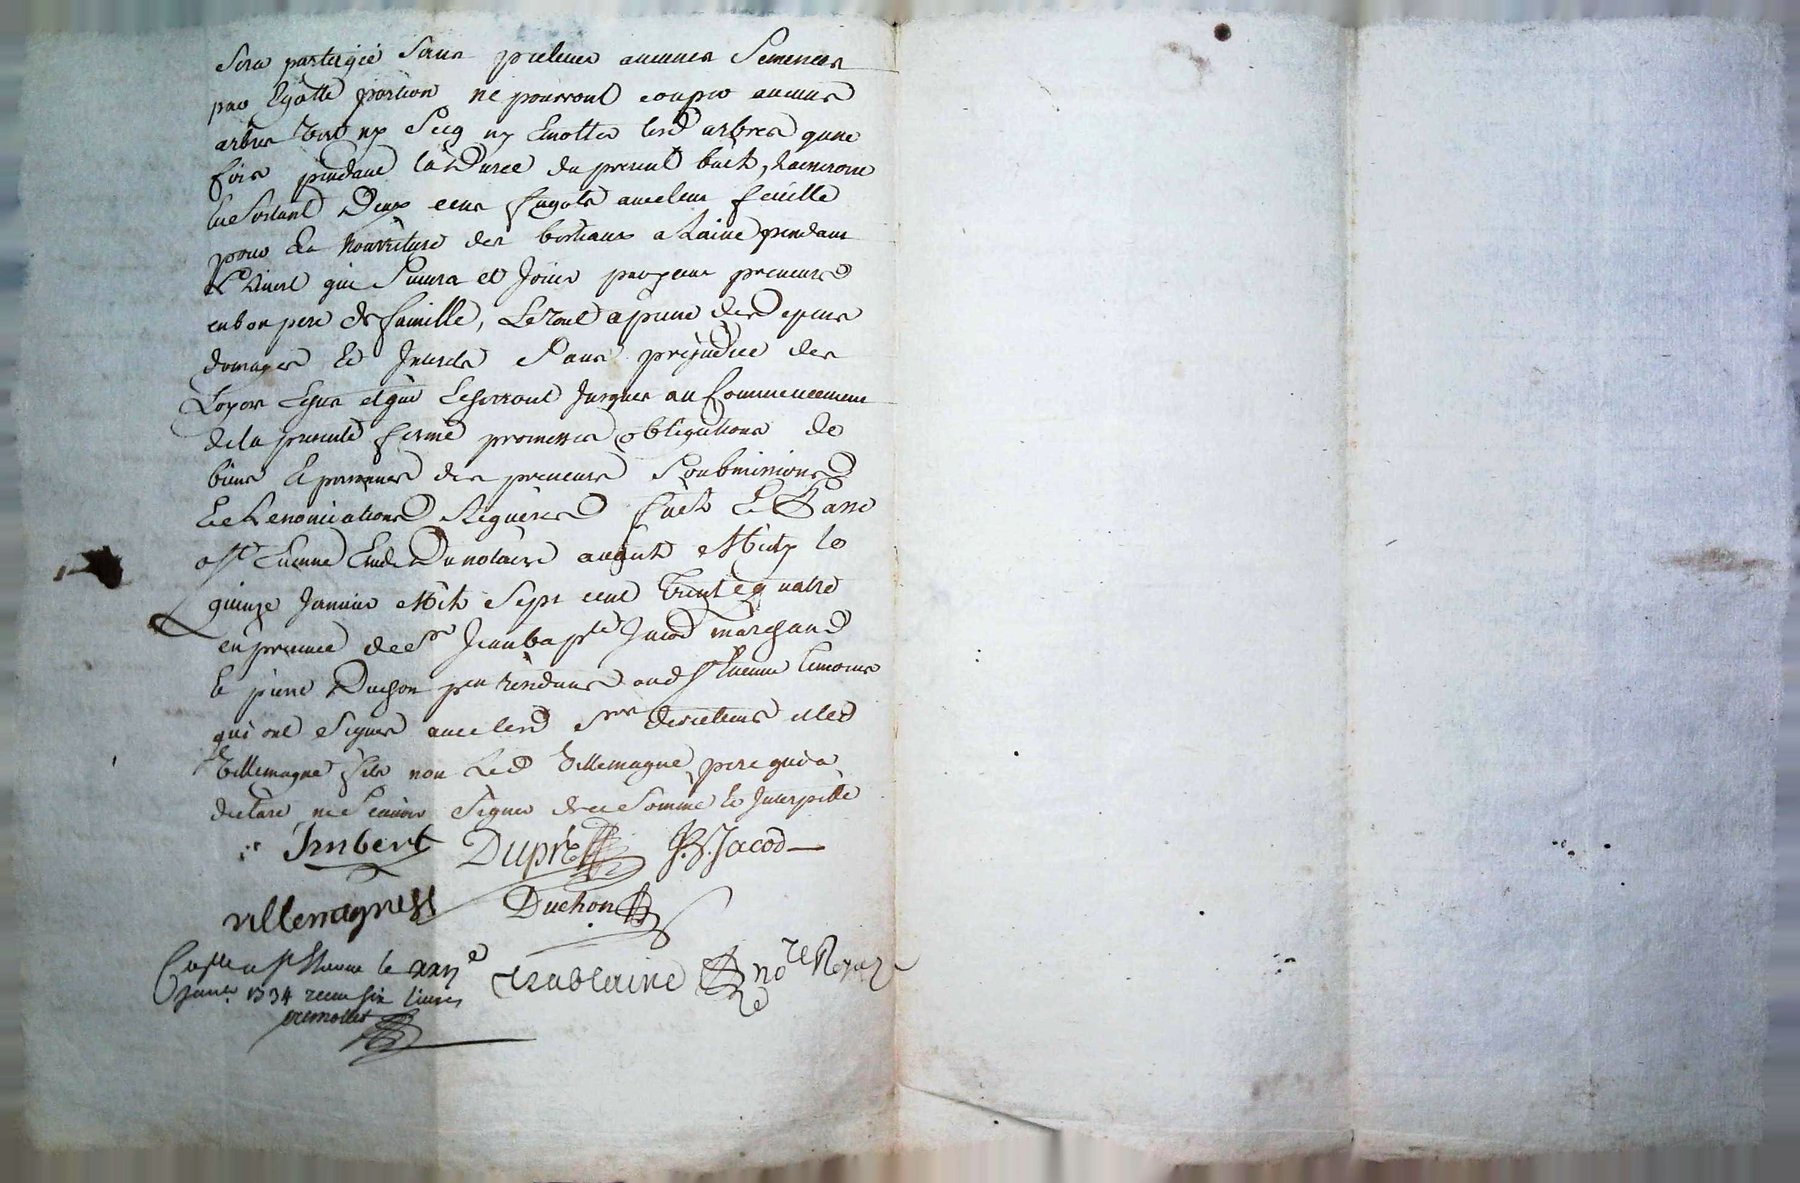 Sera partagée sans prelever aucunes Semences
par Egalle portion ne pourront couper aucuns
arbres vert ny Secq ny Emotter lesd arbres qune
fois pendant la Durée du present bail, Laisseront
En Sortant Deux cens fagots avec leur feuille
pour La Nourriture des bestiaux a Laine pendant
L'hivert qui Suivra et Jouir par yceux preneurs
en bon pere de famille, Le tout a peine de depens
domages Et Interets Sans prejudice des
Loyers Echus et qui Echerront Jusques au Commencement
de la presente ferme promesses obligations de
biens Et personnes des preneurs Soubmissions
Et Renonciations Requises fait Et Passé
a St Etienne Etude Du notaire avant Midy le
quinze Janvier Mil Sept cent trente quatre
en presence de Sr Jean bapte Jacod marchand
Et pierre Duchon praticien residants aud St Etienne temoins
qui ont Signés avec lesd Srs directeurs et led
Villemagne fils non Led Villemagne pere qui a
declaré ne Scavoir Signer de ce Sommé Et Interpellé
Imbert Dupré J.B. Jacod
villemagne Duchon
Conllé a St Etienne le xxii e
janv. 1734 receu six livres
Chablaine nore Royal